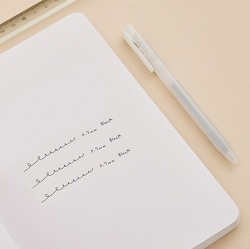 0.7mm Black
0.7mm Black
0.7mm Black